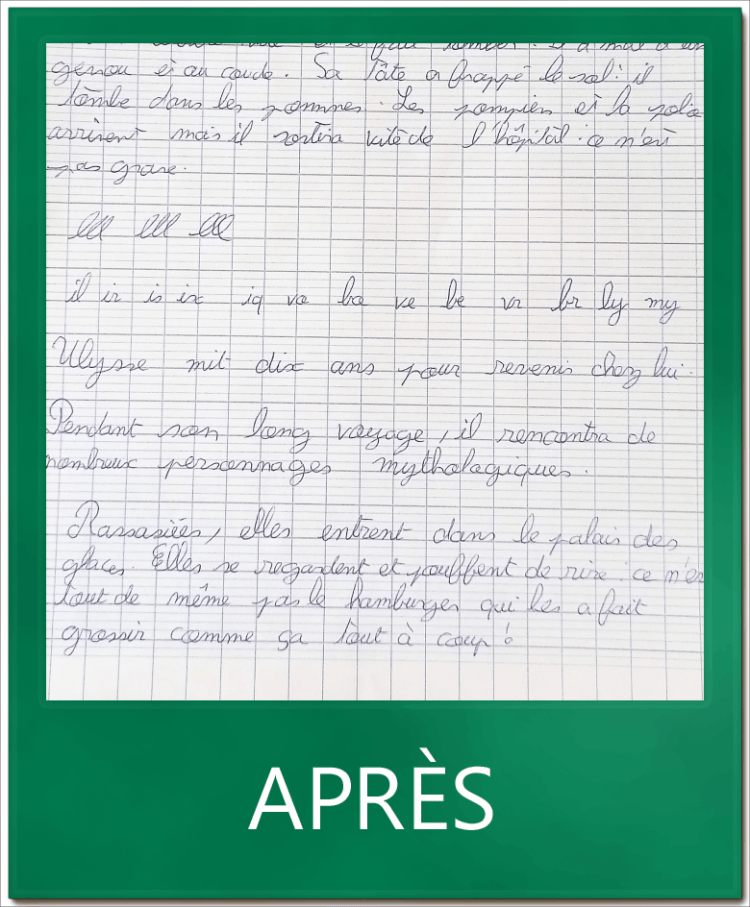 genou et au coude. Sa tâte a frappé le sol : il
tombe dans les pommes. Les pompiers et la police
arrivent mais il sortira vite de l'hôpital : ce n'est
pas grave.
lll lll lll
il ir is ix iq va ba ve be vr br ly my
Ulysse mit dix ans pour revenir chez lui.
Pendant son long voyage, il rencontra de
nombreux personnages mythologiques.
Rassasiées, elles entrent dans le palais des
glaces. Elles se regardent et pouffent de rire : ce n'es
tout de même pas le hamburger qui les a fait
grossir comme ça tout à coup !
APRÈS